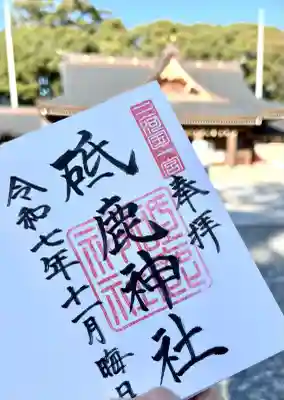 三河國一宮
奉拝
砥鹿神社
令和七年十一月晦日